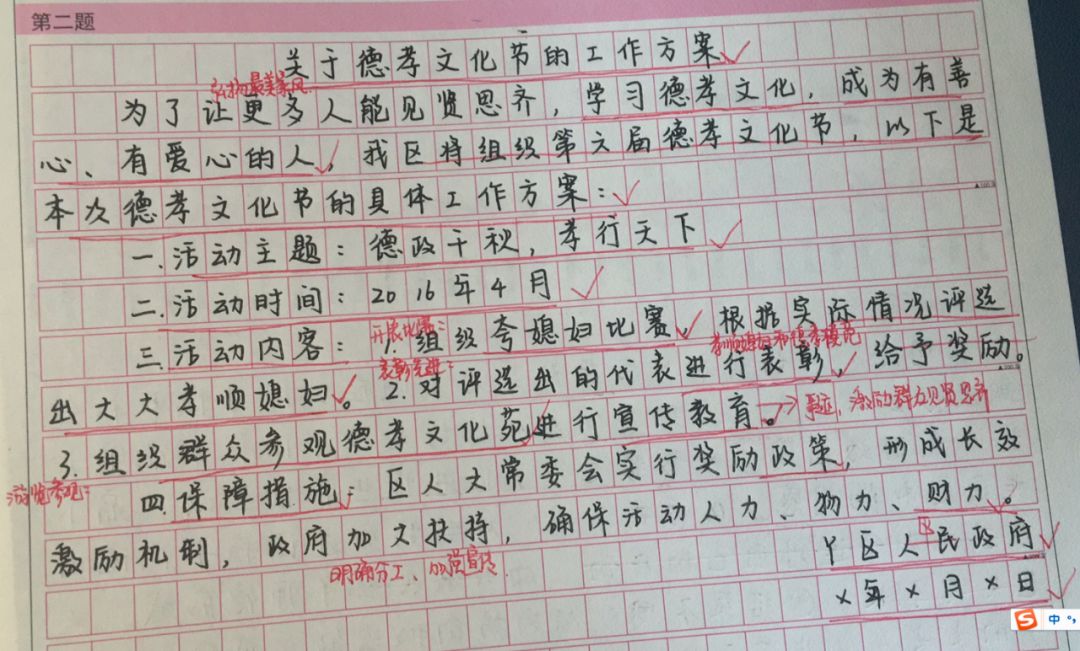 第二题
关于德孝文化节的工作方案
弘扬最美家风
为了让更多人能见贤思齐，学习德孝文化，成为有善
心、有爱心的人，我区将组织第六届德孝文化节，以下是
本次德孝文化节的具体工作方案：
一.活动主题：德政千秋，孝行天下
二.活动时间：2016年4月
开展比赛：
三.活动内容：1.组织夸媳妇比赛，根据实际情况评选
表彰先进：
出大大孝顺媳妇。2.对评选出的代表进行表彰，给予奖励。
3.组织群众参观德孝文化苑进行宣传教育。
激励群众见贤思齐
游览参观：
四.保障措施：区人大常委会实行奖励政策，形成长效
激励机制，政府加大扶持，确保活动人力、物力、财力。
明确分工、加强宣传
区
丫区人民政府
×年×月×日
中